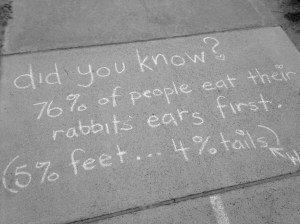 did you know?
76% of people eat their
rabbits ears first.
(5% feet... 4% tails)